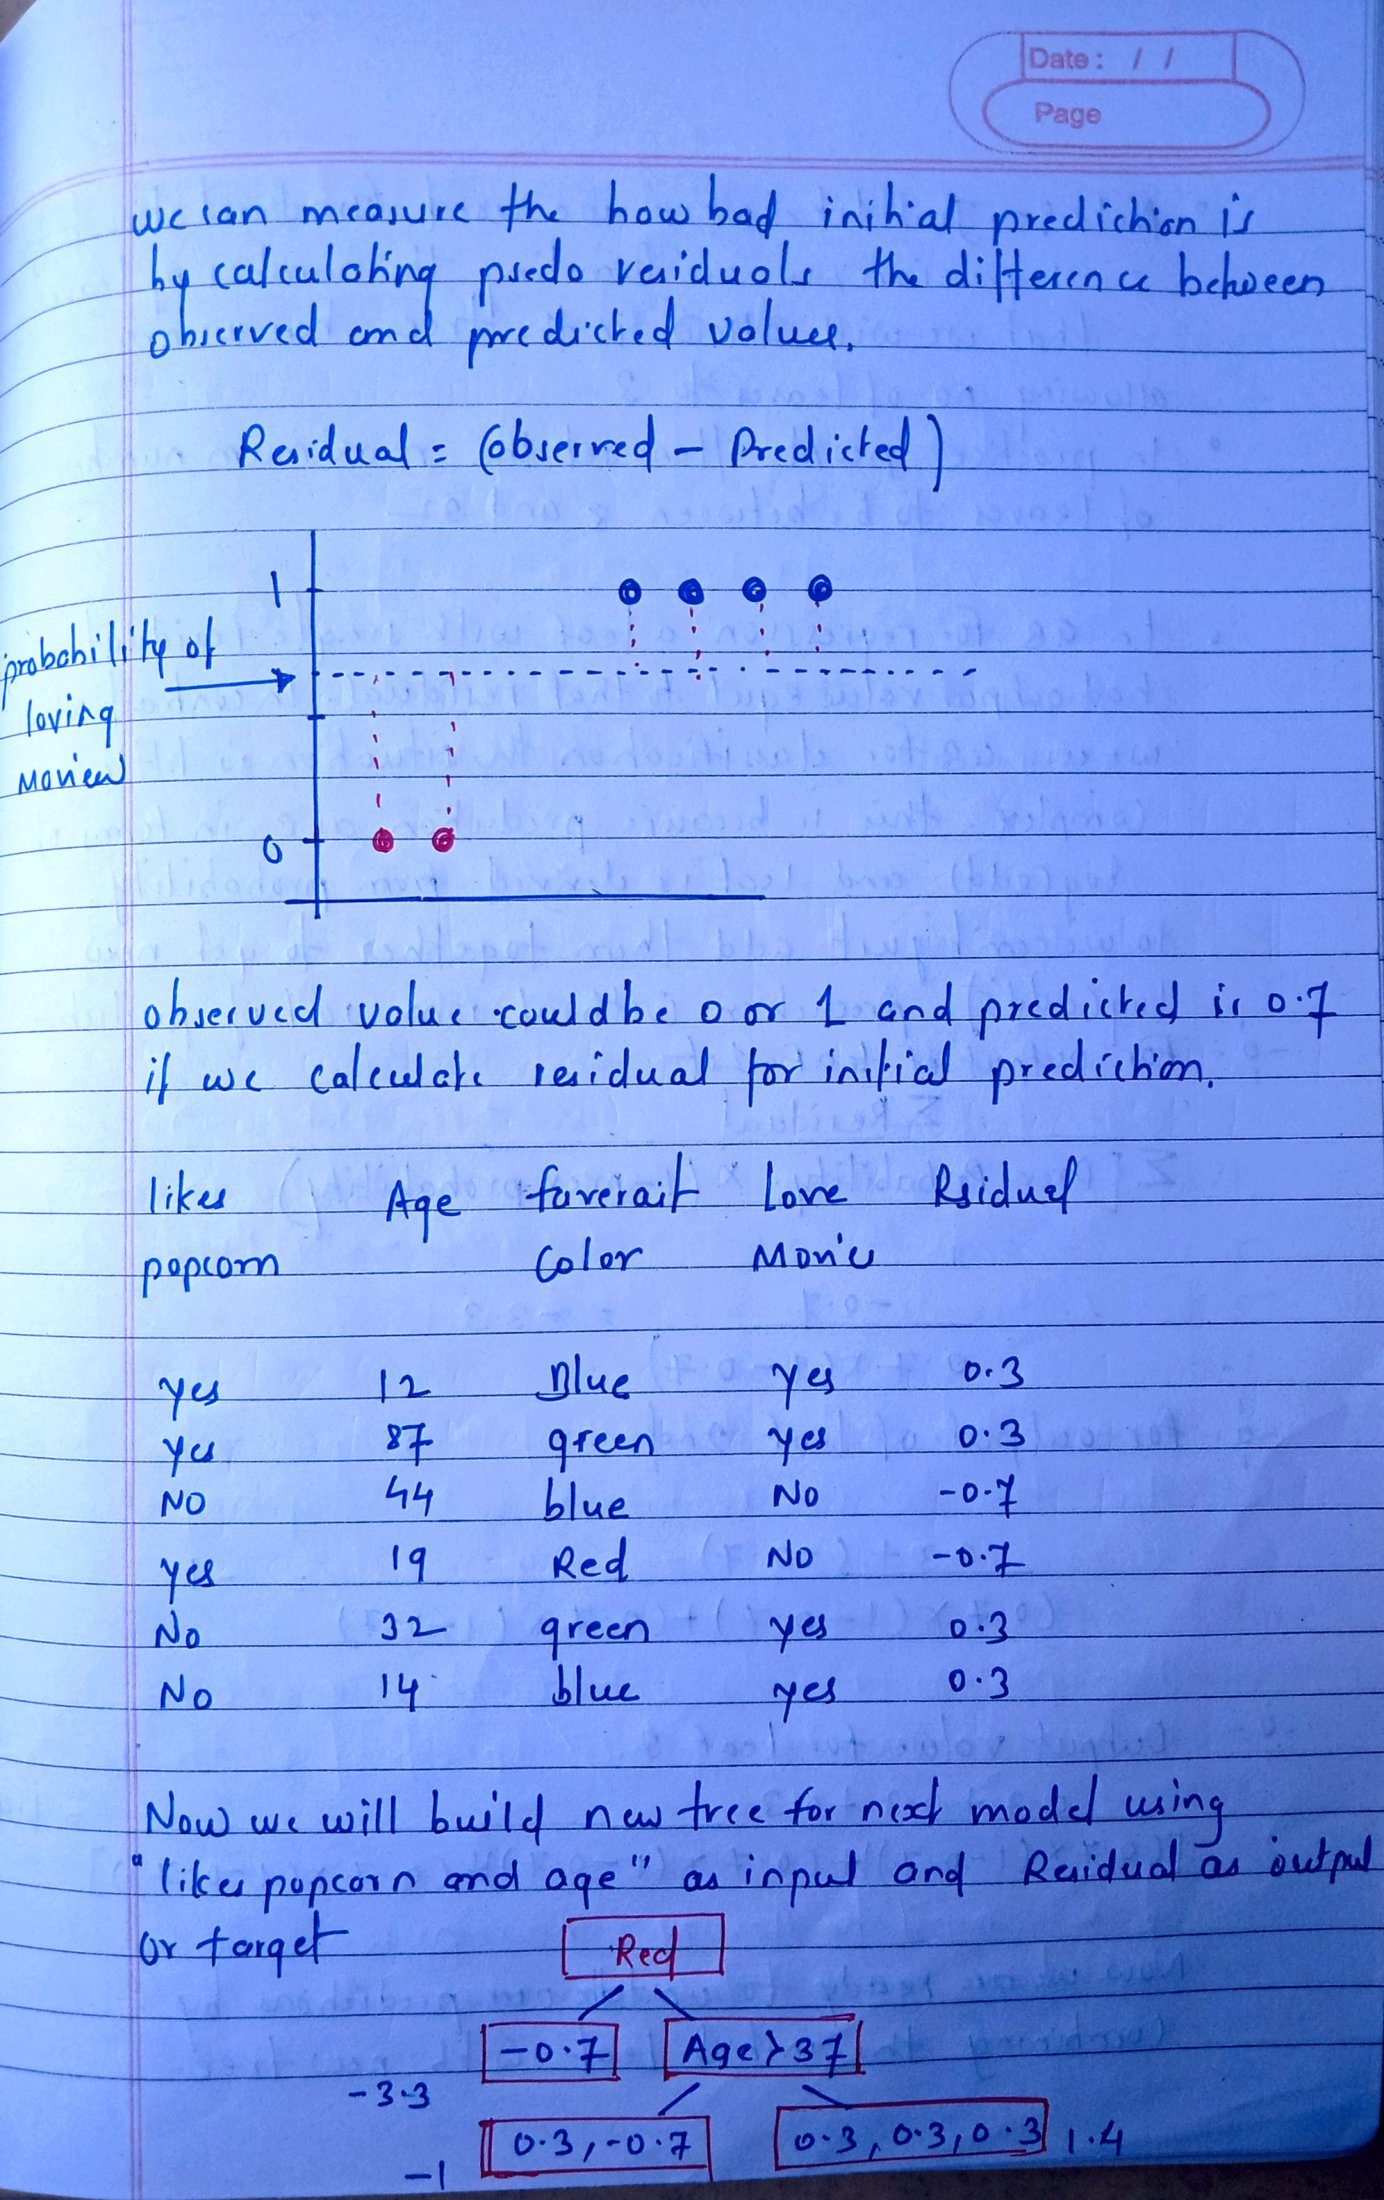 Date: / /
Page
we can measure the how bad initial prediction is
by calculating psedo residuals the difference between
observed and predicted values.
Residual = (observed - Predicted)
1
probability of
loving
Moview
0
observed value could be 0 or 1 and predicted is 0.7
if we calculate residual for initial prediction.
likes Age faverait Love Rsidual
popcorn Color Movie
yes 12 Blue yes 0.3
yes 87 green yes 0.3
NO 44 blue No -0.7
yes 19 Red NO -0.7
No 32 green yes 0.3
No 14 blue yes 0.3
Now we will build new tree for next model using
"likes popcorn and age" as input and Residual as output
or target
Red
-0.7 Age>37
-3.3
0.3, -0.7 0.3, 0.3, 0.3 1.4
-1